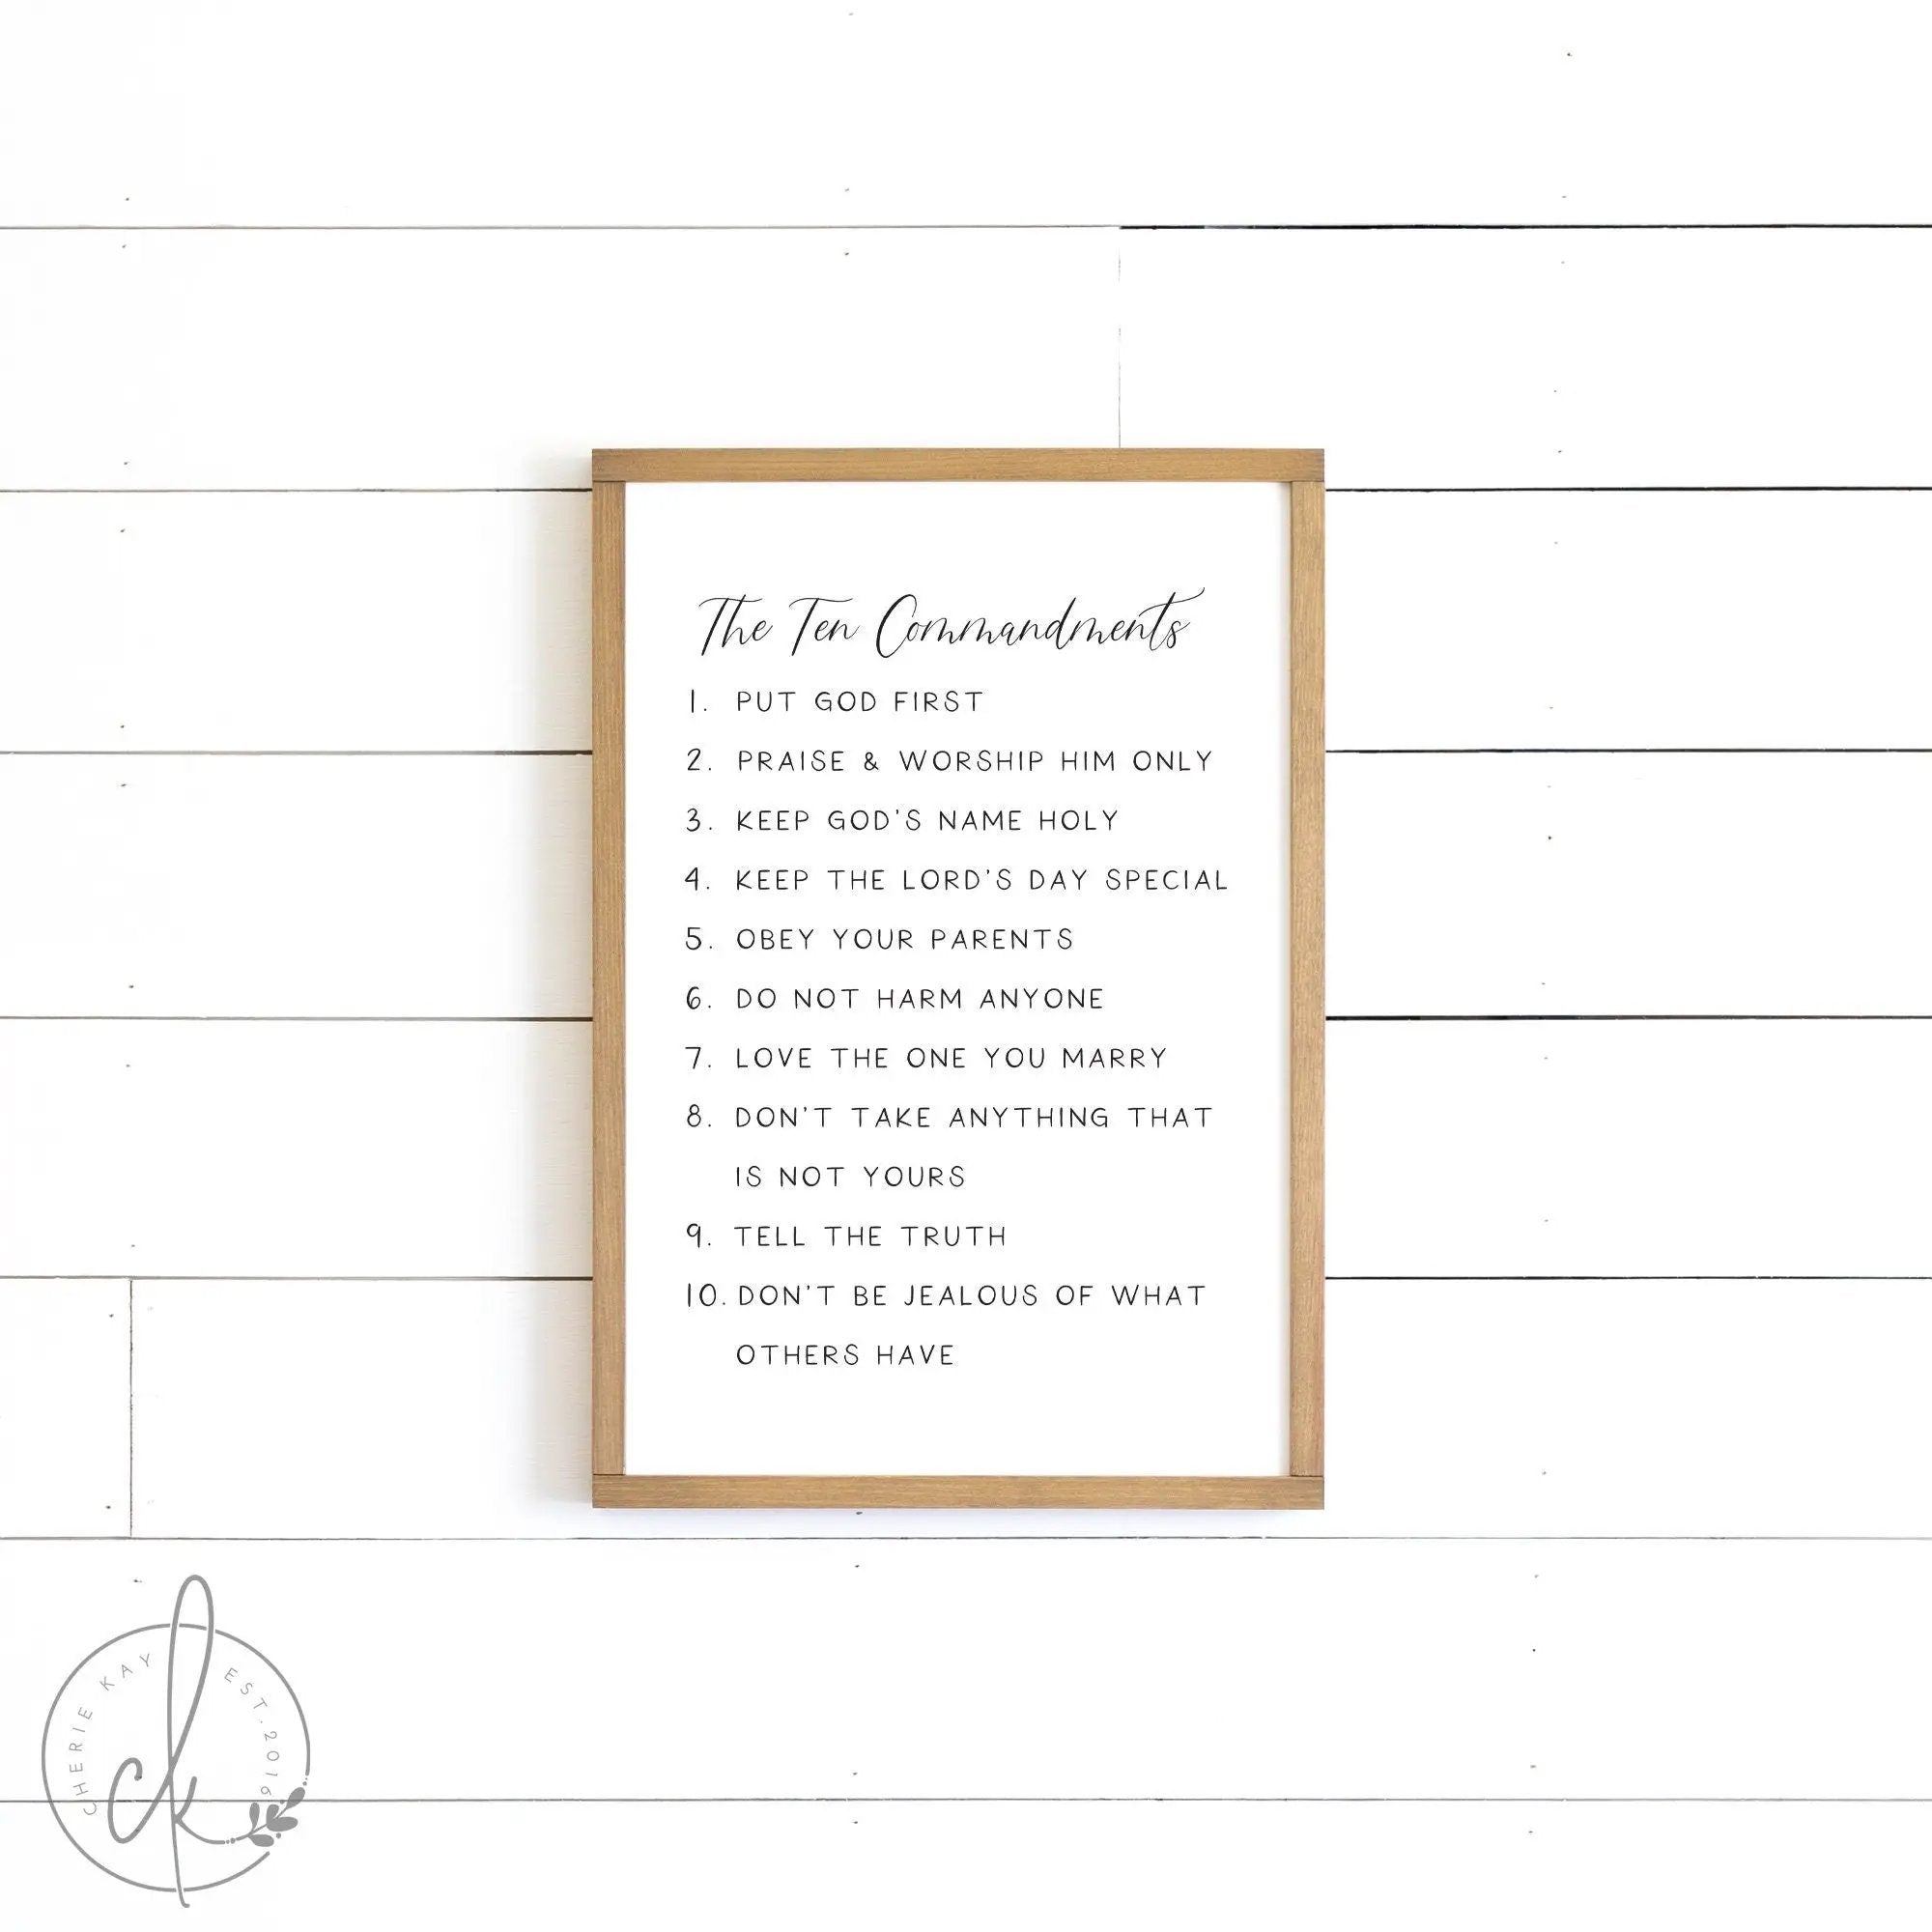 The Ten Commandments
1. PUT GOD FIRST
2. PRAISE & WORSHIP HIM ONLY
3. KEEP GOD'S NAME HOLY
4. KEEP THE LORD'S DAY SPECIAL
5. OBEY YOUR PARENTS
6. DO NOT HARM ANYONE
7. LOVE THE ONE YOU MARRY
8. DON'T TAKE ANYTHING THAT
IS NOT YOURS
9. TELL THE TRUTH
10. DON'T BE JEALOUS OF WHAT
OTHERS HAVE
CHERIE KAY EST. 2016
ck